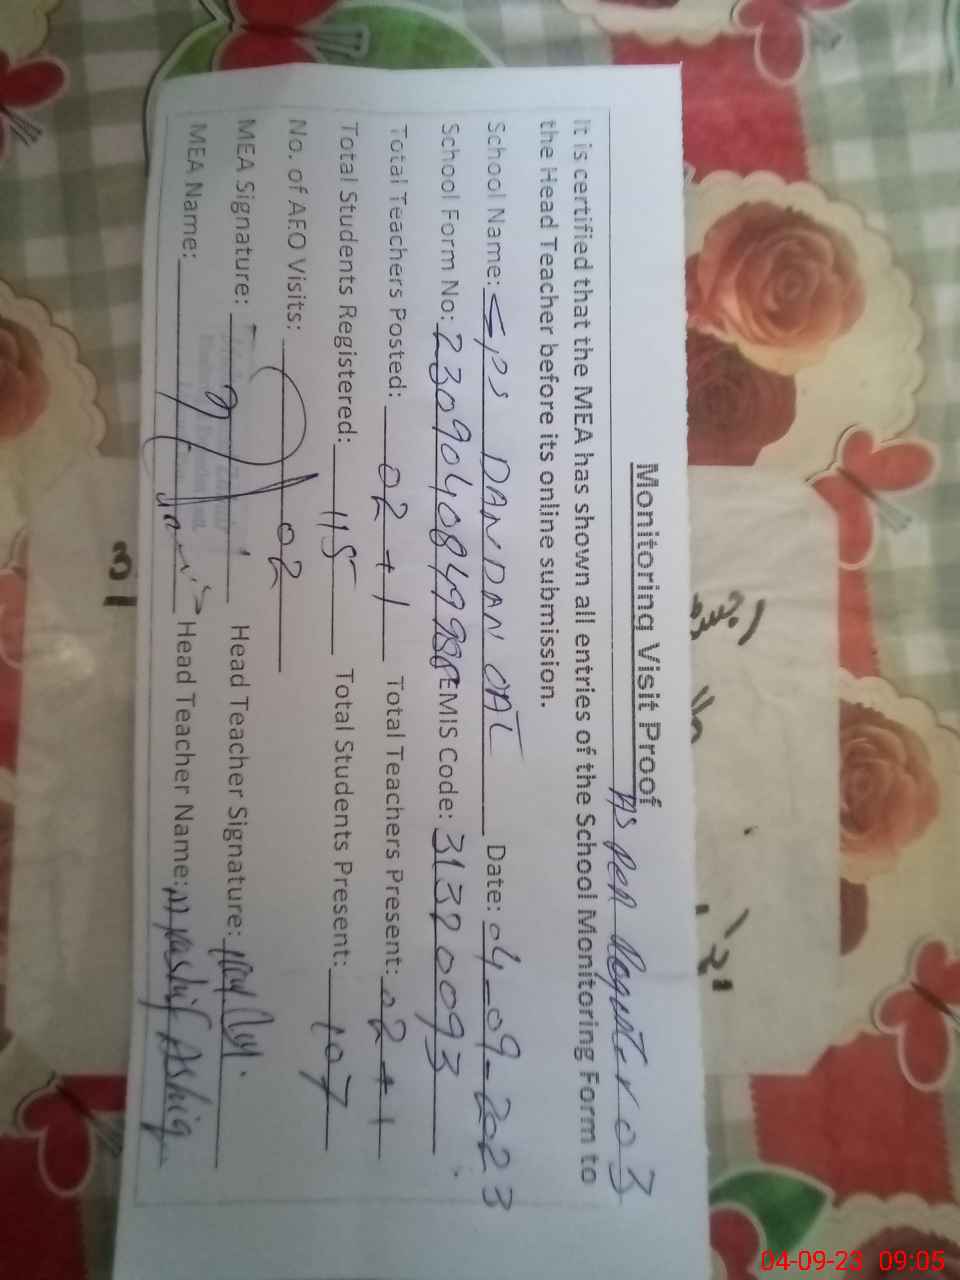 Monitoring Visit Proof
As per Register 03
It is certified that the MEA has shown all entries of the School Monitoring Form to
the Head Teacher before its online submission.
School Name: GPS DANDAN OAT Date: 04-09-2023
School Form No: EMIS Code: 31320093
Total Teachers Posted: 02+1 Total Teachers Present: 02+1
Total Students Registered: 115 Total Students Present: 107
No. of AEO Visits: 02
MEA Signature: Head Teacher Signature:
MEA Name: Head Teacher Name: M Kashif Ashiq
04-09-23 09:05